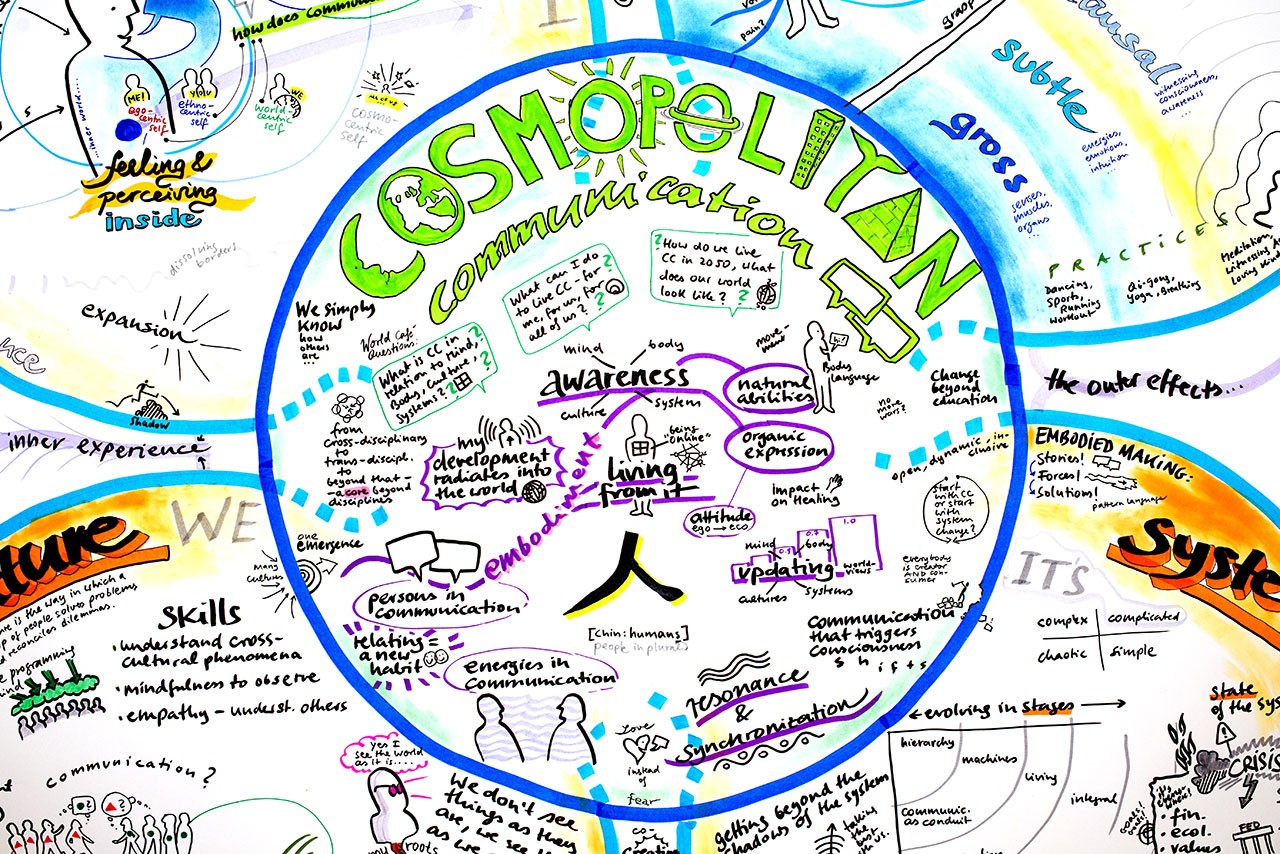 how does commun
ME!
ego-
centric
self
YOU
ethno-
centric
self
WE
world-
centric
self
all of us
cosmo-
centric
self
feeling &
perceiving
inside
dissolving
borders
expansion
shadow
inner experience
pain?
grasp
causal
witnessing,
consciousness,
awareness
...
subtle
energies,
emotions,
intuition
...
gross
senses,
muscles,
organs
...
PRACTICES
Dancing,
Sports,
Running
workout
Qi-gong,
Yoga, Breathing
Meditation,
the outer effects...
COSMOPOLITAN
communication
We simply
know
how
others
are
...
World Café
Questions:
What is CC in
relation to Mind,
Body, Culture,
Systems??
What can I do
to live CC - for
me, for us, for
all of us?
?How do we live
CC in 2050, what
does our world
look like?
mind
body
awareness
culture
system
natural
abilities
move-
ment
Hi!
Body
Language
no
more
wars?
Change
beyond
education
open, dynamic, in-
clusive
from
cross-disciplinary
to
trans-discipl.
to
beyond that -
-a core beyond
disciplines
my
development
radiates into
the world
embodiment
being
"online"
living
from it
organic
exprssion
attitude
ego → eco
Impact
on Healing
Start
with CC
or start
with
System
change?
one
emergence
Many
cultures
persons in
communication
relating =
a new
habit
energies in
communication
人
[chin: humans]
people in plural
mind
body
0.5
0.7
1.0
updating
world-
views
cultures
systems
everybody
is creator
AND con-
sumer
communication
that triggers
consciousness
shifts
resonance
&
synchronization
Love
instead
of
fear
WE
Skills
• understand cross-
cultural phenomena
• mindfulness to observe
• empathy - underst. others
is the way in which a
of people solves problems
reconciles dilemmas.
programming
communication?
yes I
see the world
as it is....
roots
We don't see
things as they
are, we see th
as we
getting beyond the
shadows of the system
EMBODIED MAKING:
Stories!
Forces!
Solutions!
pattern language
Syste
IT'S
complex
complicated
chaotic
simple
← evolving in stages →
hierarchy
machines
living
integral
communic.
as conduit
State
of the Sys
CRISIS
• fin.
• ecol.
• values
FED